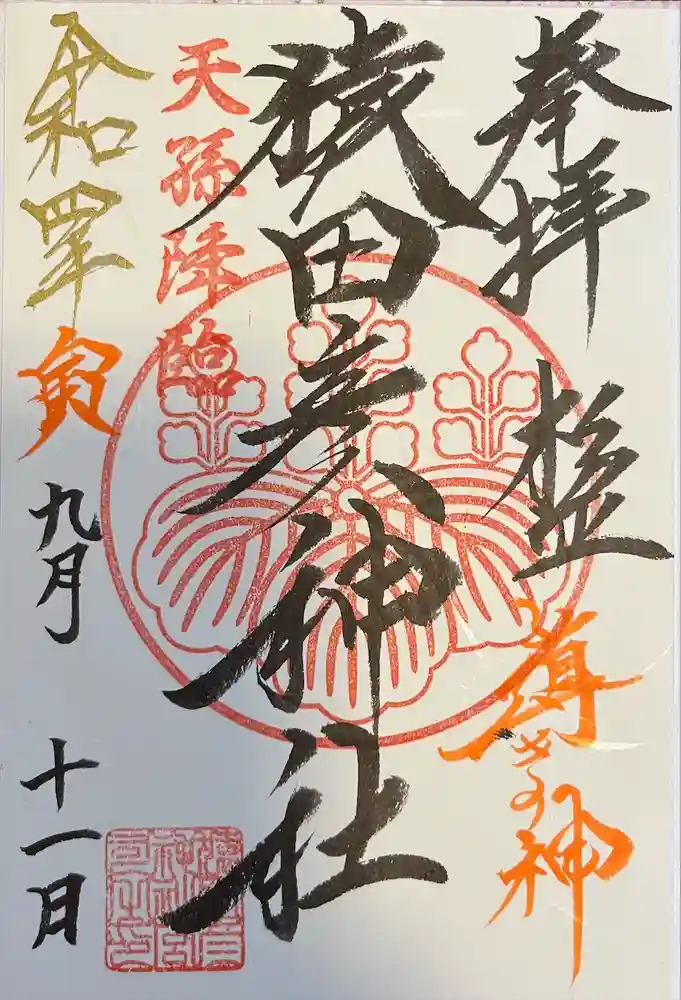 奉拝
導きの神
猿田彦神社
天孫降臨
令和四年寅九月十一日